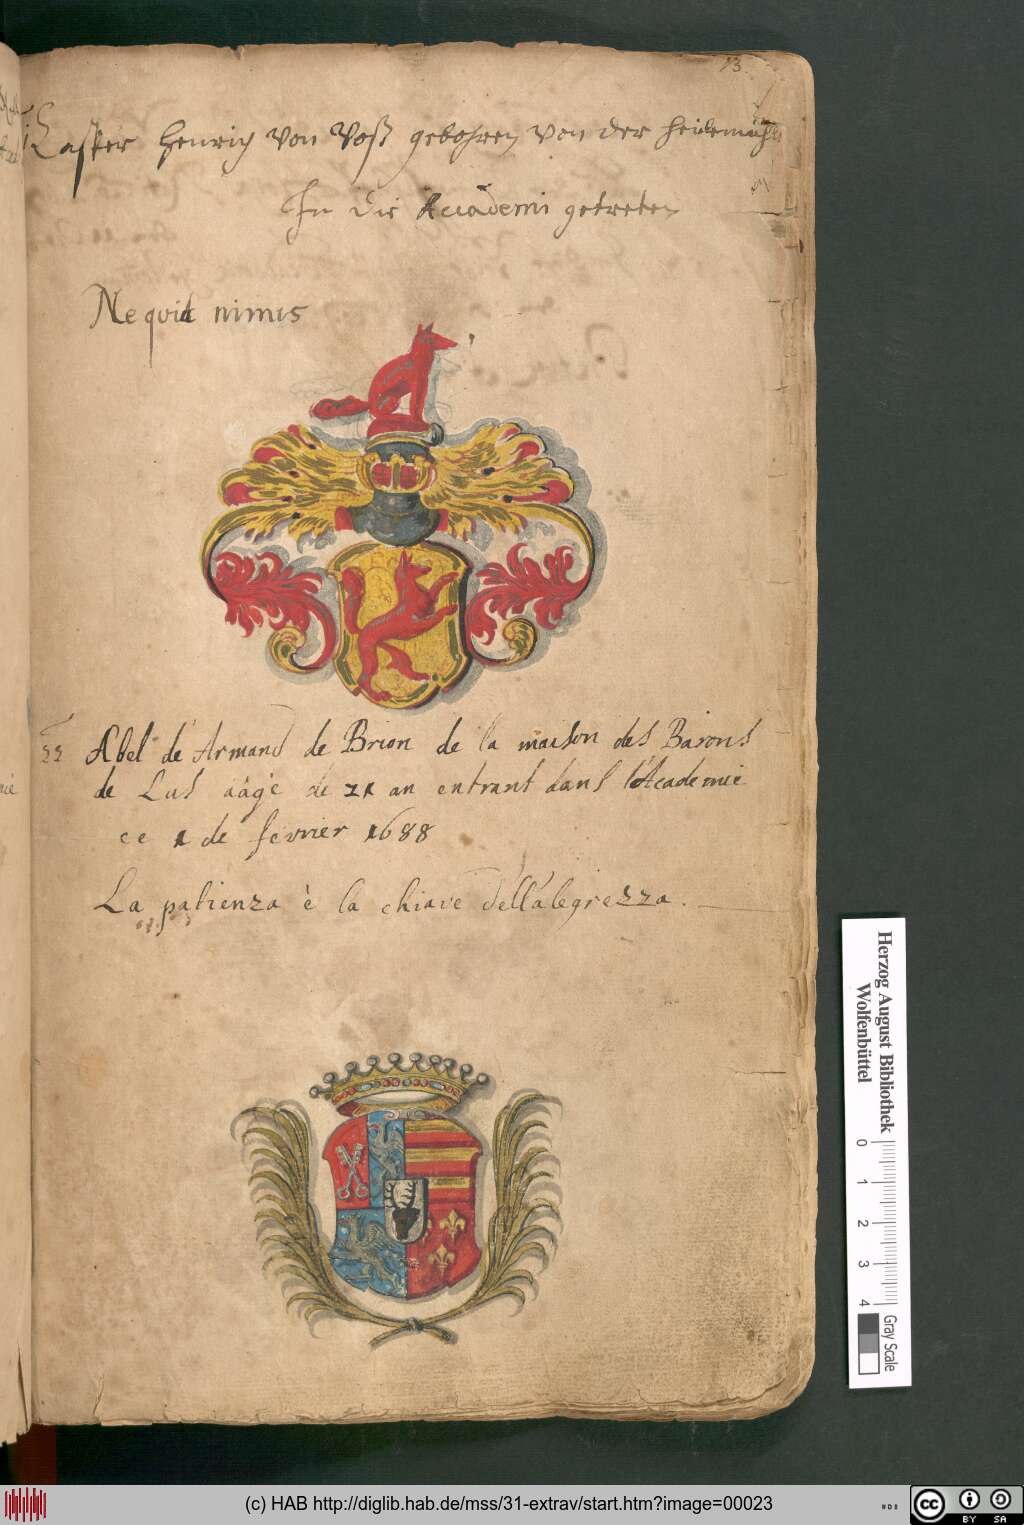 13
Casper Henrich Von Voß gebohren Von der Heidemühl
In die Accademi getreten
Ne quid nimis
22 Abel de Armand de Brion de la maison des Barons
de Lus aâgé de 21 an entrant dans l'Academie
ce 1 de fevrier 1688
La patienza è la chiave dell'alegrezza.
Herzog August Bibliothek
Wolfenbüttel
0 1 2 3 4
Gray Scale
(c) HAB http://diglib.hab.de/mss/31-extrav/start.htm?image=00023
cc BY SA